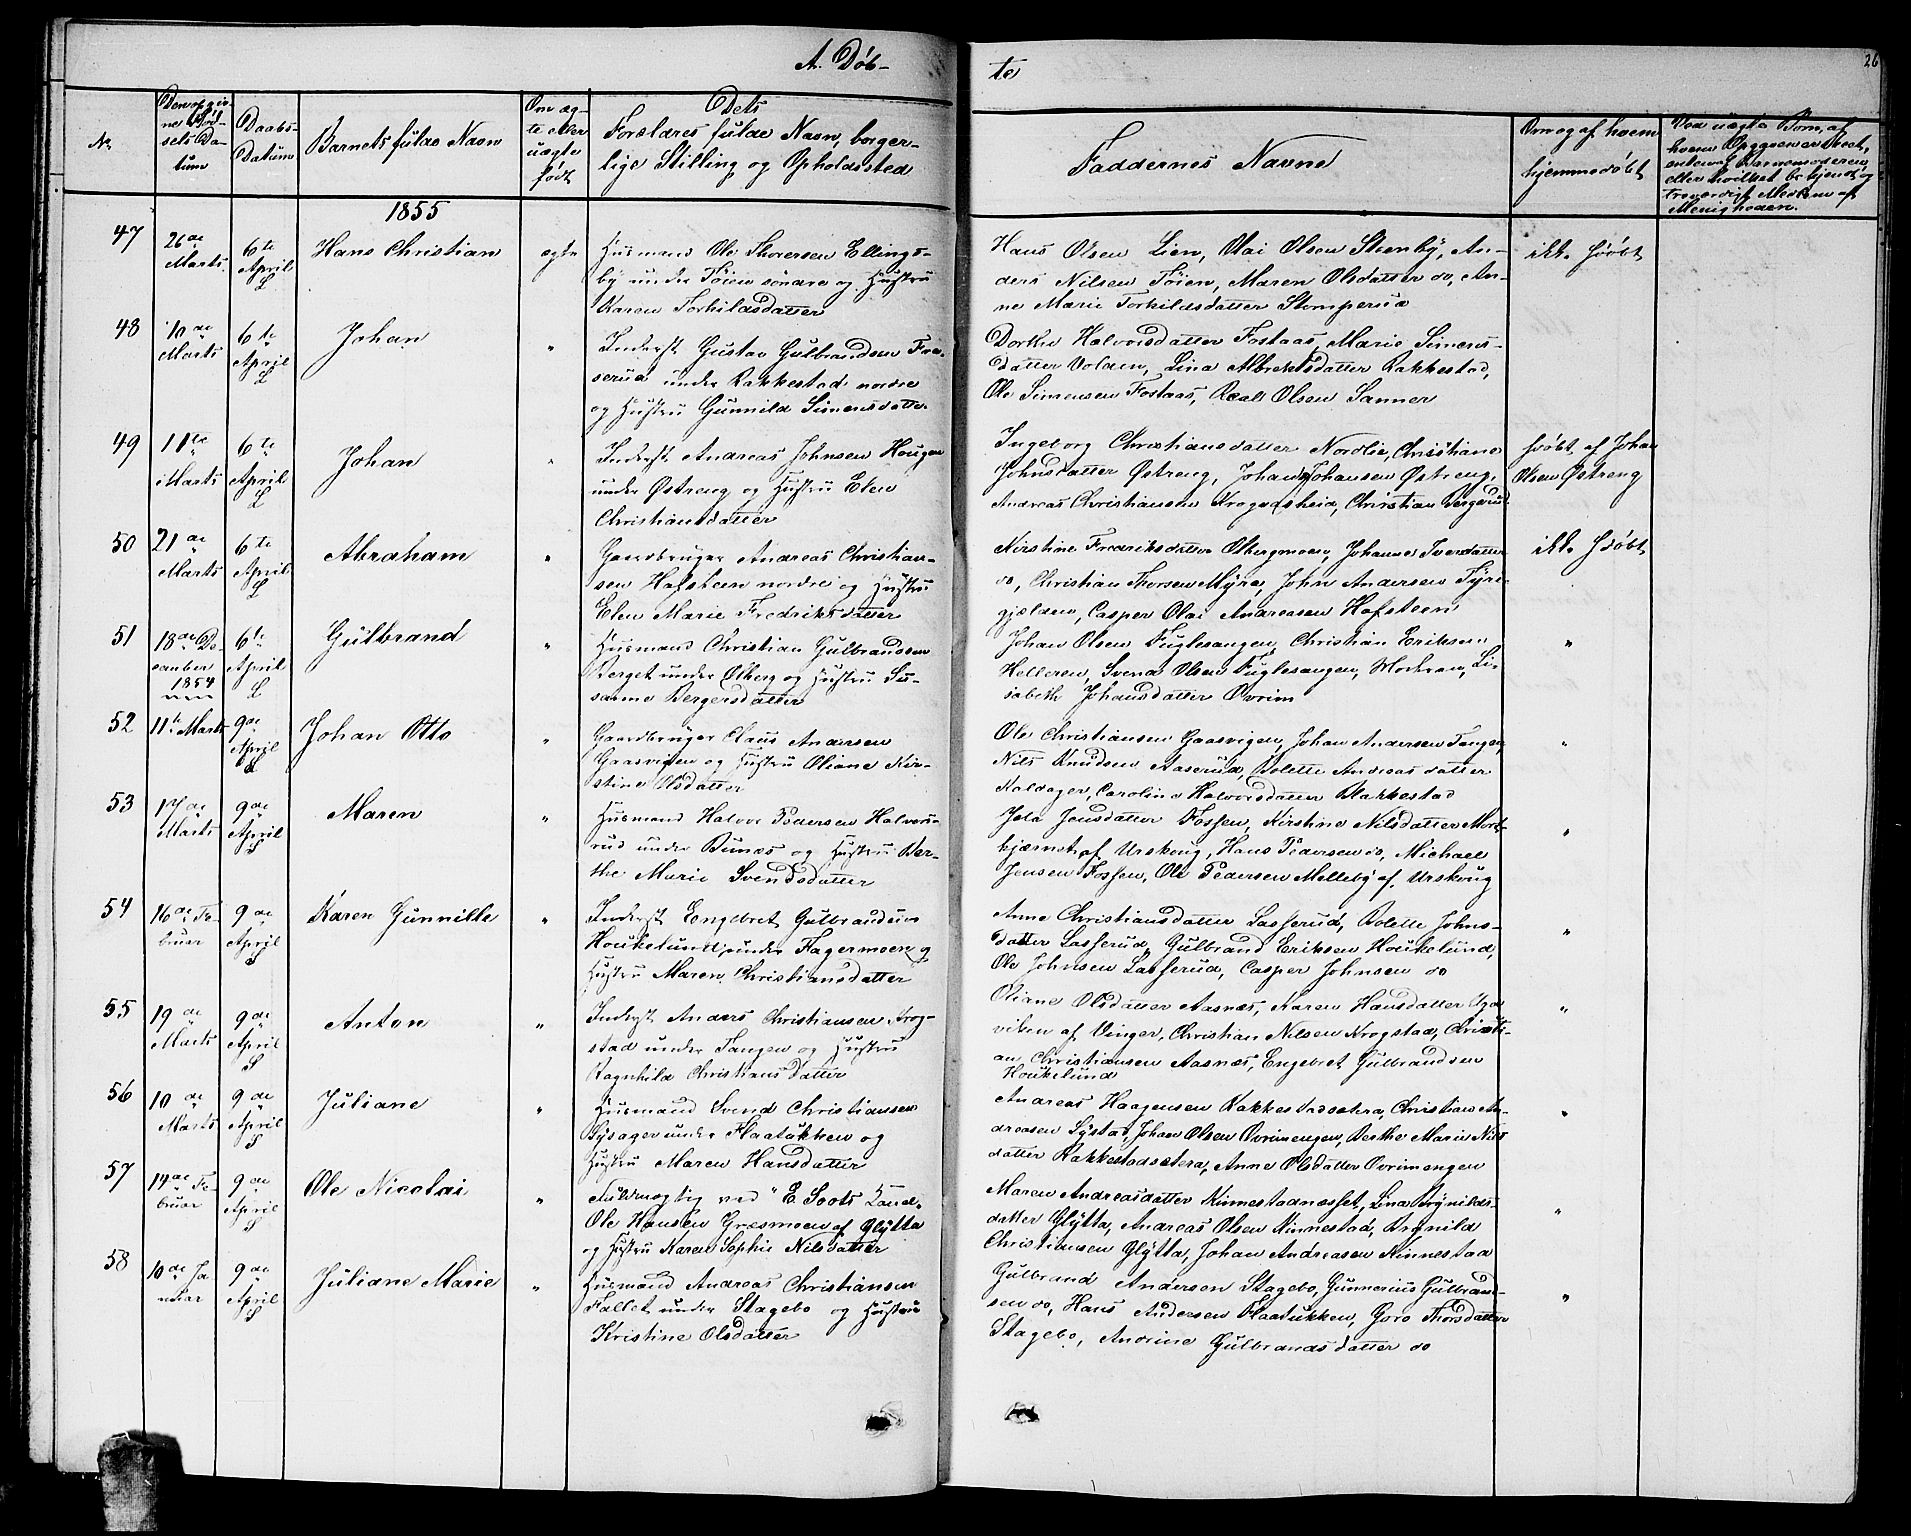 A. Døb-
te
26
No.
Den opgiv-
ne Fød-
sels Da-
tum
Daabs-
Datum
Barnets fulde Navn
Om æg-
te eller
uægte
født
Dets
Forældres fulde Navn, borger-
lige Stilling og Opholdssted
Faddernes Navne
Om og af hvem
hjemmedøbt
Ved uægte Børn, af
hvem Opgaven er skeet,
enten af Barnemoderen
eller hvilket bekjendt og
troværdigt Medlem af
Menigheden.
1855
47
26de
Marts
6te
April
L
Hans Christian
ægte
Husmand Ole Thoresen Ellings-
by under Føien søndre og Hustru
Karen Torkildsdatter
Hans Olsen Lien, Olai Olsen Steenby, An-
ders Nilsen Føien, Maren Olsdatter do, An-
ne Marie Torkildsdatter Stomperud
ikke hjdøbt
48
10de
Marts
6te
April
L
Johan
"
Inderst Gustav Gulbrandsen
serud under Rakkestad nordre
og Hustru Gunnild Simensdatter
Dorthe Halvorsdatter Fostaas, Marie Simens-
datter Volden, Lina Albrektsdatter Rakkestad,
Ole Simensen Fostaas, Olsen Sanner
49
11te
Marts
6te
April
L
Johan
"
Inderst Andreas Johnsen Hougen
under Østreng og Hustru Elen
Christiansdatter
Ingeborg Christiansdatter Nordlie, Christiane
Johnsdatter Østreng, Johan Johansen Østreng,
Andreas Christiansen Krogvasheia, Christian Bergerud
hjdøbt af Johan
Olsen Østreng
50
21de
Marts
6te
April
L
Abraham
"
Gaardbruger Andreas Christian-
sen Hafsteen nordre og Hustru
Elen Marie Fredriksdatter
Kirstine Fredriksdatter Olbergmoen, Johanne Iversdatter
do, Christian Thorsen Myra, John Andersen Fyri-
gjelden, Casper Olai Andreasen Hofsteen
ikke hjdøbt
51
18de De-
cember
1854
6te
April
L
Gulbrand
"
Husmand Christian Gulbrandsen
Berget under Olberg og Hustru Su-
sanne Bergersdatter
Johan Olsen Fuglesangen, Christian Eriksen
Helleren, Svend Olsen Fuglesangen, Li-
sabeth Johansdatter Ovrim
"
52
11te Marts
9de
April
L
Johan Otto
"
Gaardbruger Claus Andersen
Gaasvigen og Hustru Oliane Kir-
stine Olsdatter
Ole Christiansen Gaasvigen, Johan Andersen Tangen,
Nils Knudsen Aaserud, Bolette Andreasdatter
Kaldager, Caroline Halvorsdatter Rakkestad
"
53
17de
Marts
9de
April
S
Maren
"
Husmand Halvor Pedersen Halvors-
rud under Bunæs og Hustru Ber-
the Marie Svendsdatter
Jensdatter Fossen, Kirstine Nilsdatter Mort-
kjærnet af Urskoug, Hans Pedersen do, Michael
Jensen Fossen, Ole Pedersen Melleby af Urskoug
"
54
16de Fe-
bruar
9de
April
S
Karen Gunnille
"
Inderst Engebret Gulbrandsen
Houkelund, under Fagermoen og
Hustru Maren Christiansdatter
Anne Christiansdatter Lasserud, Bolette Johns-
datter Lasserud, Gulbrand Eriksen Houkelund,
Ole Johnsen Lasserud, Casper Johnsen do
"
55
19de
Marts
9de
April
S
Anton
"
Inderst Anders Christiansen Krog-
stad under Tangen og Hustru
Ragnhild Christiansdatter
Oliane Olsdatter Aasnæs, Karen Hansdatter
viken af Vinger, Christian Nilsen Krogstad, Christi-
an Christiansen Aasnæs, Engebret Gulbrandsen
Houkelund
"
56
10de
Marts
9de
April
S
Juliane
"
Husmand Svend Christiansen
Lysager under Flaatukken og
Hustru Maren Hansdatter
Andreas Haagensen Rakkestadsætra, Christian An-
dreasen Systad, Johan Olsen Ovrimengen, Berthe Marie Nils
datter Rakkestadsætera, Anne Olsdatter Ovrimengen
"
57
14de Fe-
bruar
9de
April
S
Ole Nicolai
"
Fuldmægtig ved E Soots Kanal.
Ole Hansen Græsmoen af Glytta
og Hustru Karen Sophie Nilsdatter
Maren Andreasdatter Kinnestadnæsset, Lina Brynilds-
datter Glytta, Andreas Olsen Kinnestad, Brynild
Christiansen Glytta, Johan Andreasen Kinnestad
"
58
10de Ja-
nuar
9de
April
S
Juliane Marie
"
Husmand Andreas Christiansen
Fallet under Stagebo og Hustru
Kristine Olsdatter
Gulbrand Andersen Stagebo, Gunnerius Gulbrand-
sen do, Hans Andersen Flaatukken, Goro Thorsdatter
Stagebo, Andrine Gulbrandsdatter do
"